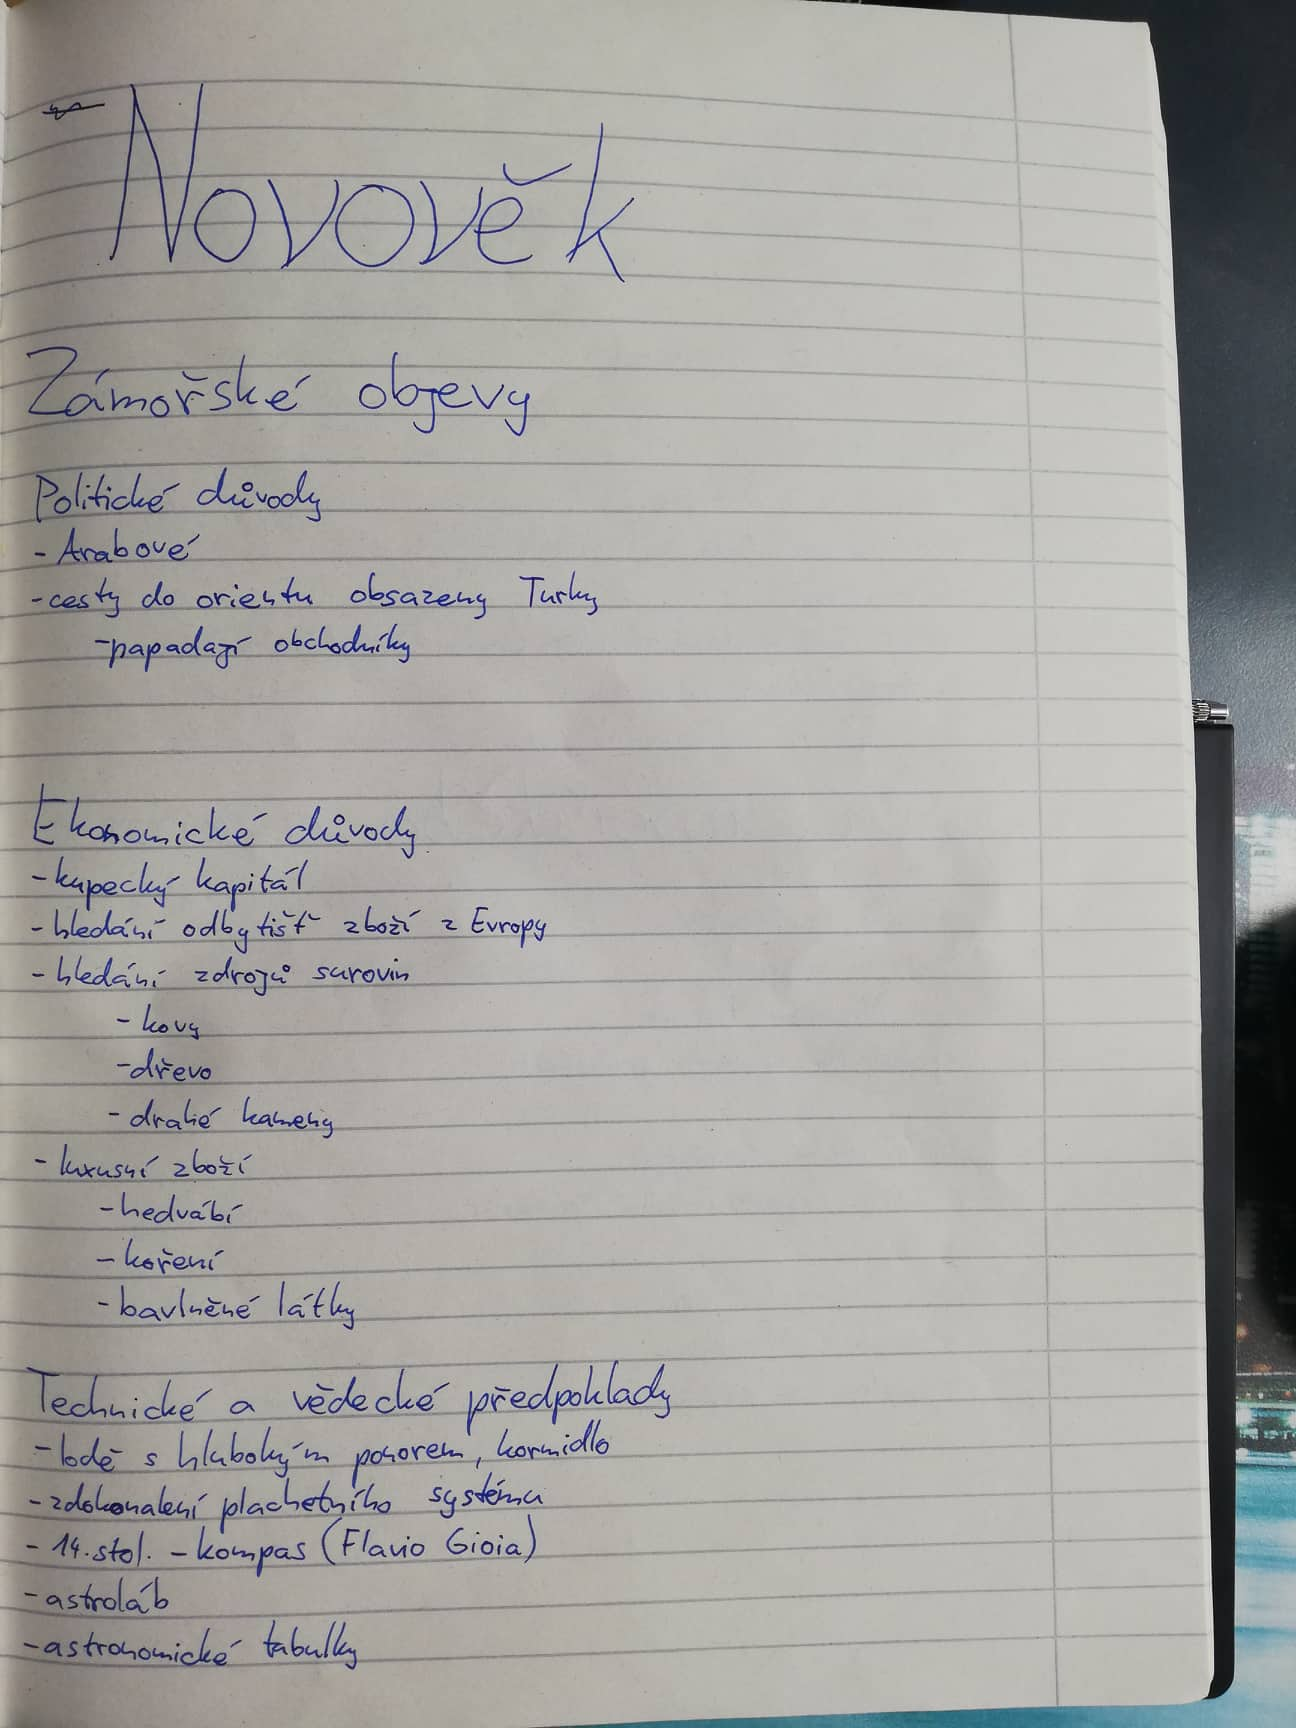 Novověk
Zámořské objevy
Politické důvody
- Arabové
- cesty do orientu obsazeny Turky
- papadají obchodníky
Ekonomické důvody
- kupecký kapitál
- hledání odbytišť zboží z Evropy
- hledání zdrojů surovin
- kovy
- dřevo
- drahé kameny
- luxusní zboží
- hedvábí
- koření
- bavlněné látky
Technické a vědecké předpoklady
- lodě s hlubokým ponorem, kormidlo
- zdokonalení plachetního systému
- 14. stol. - kompas (Flavio Gioia)
- astroláb
- astronomické tabulky